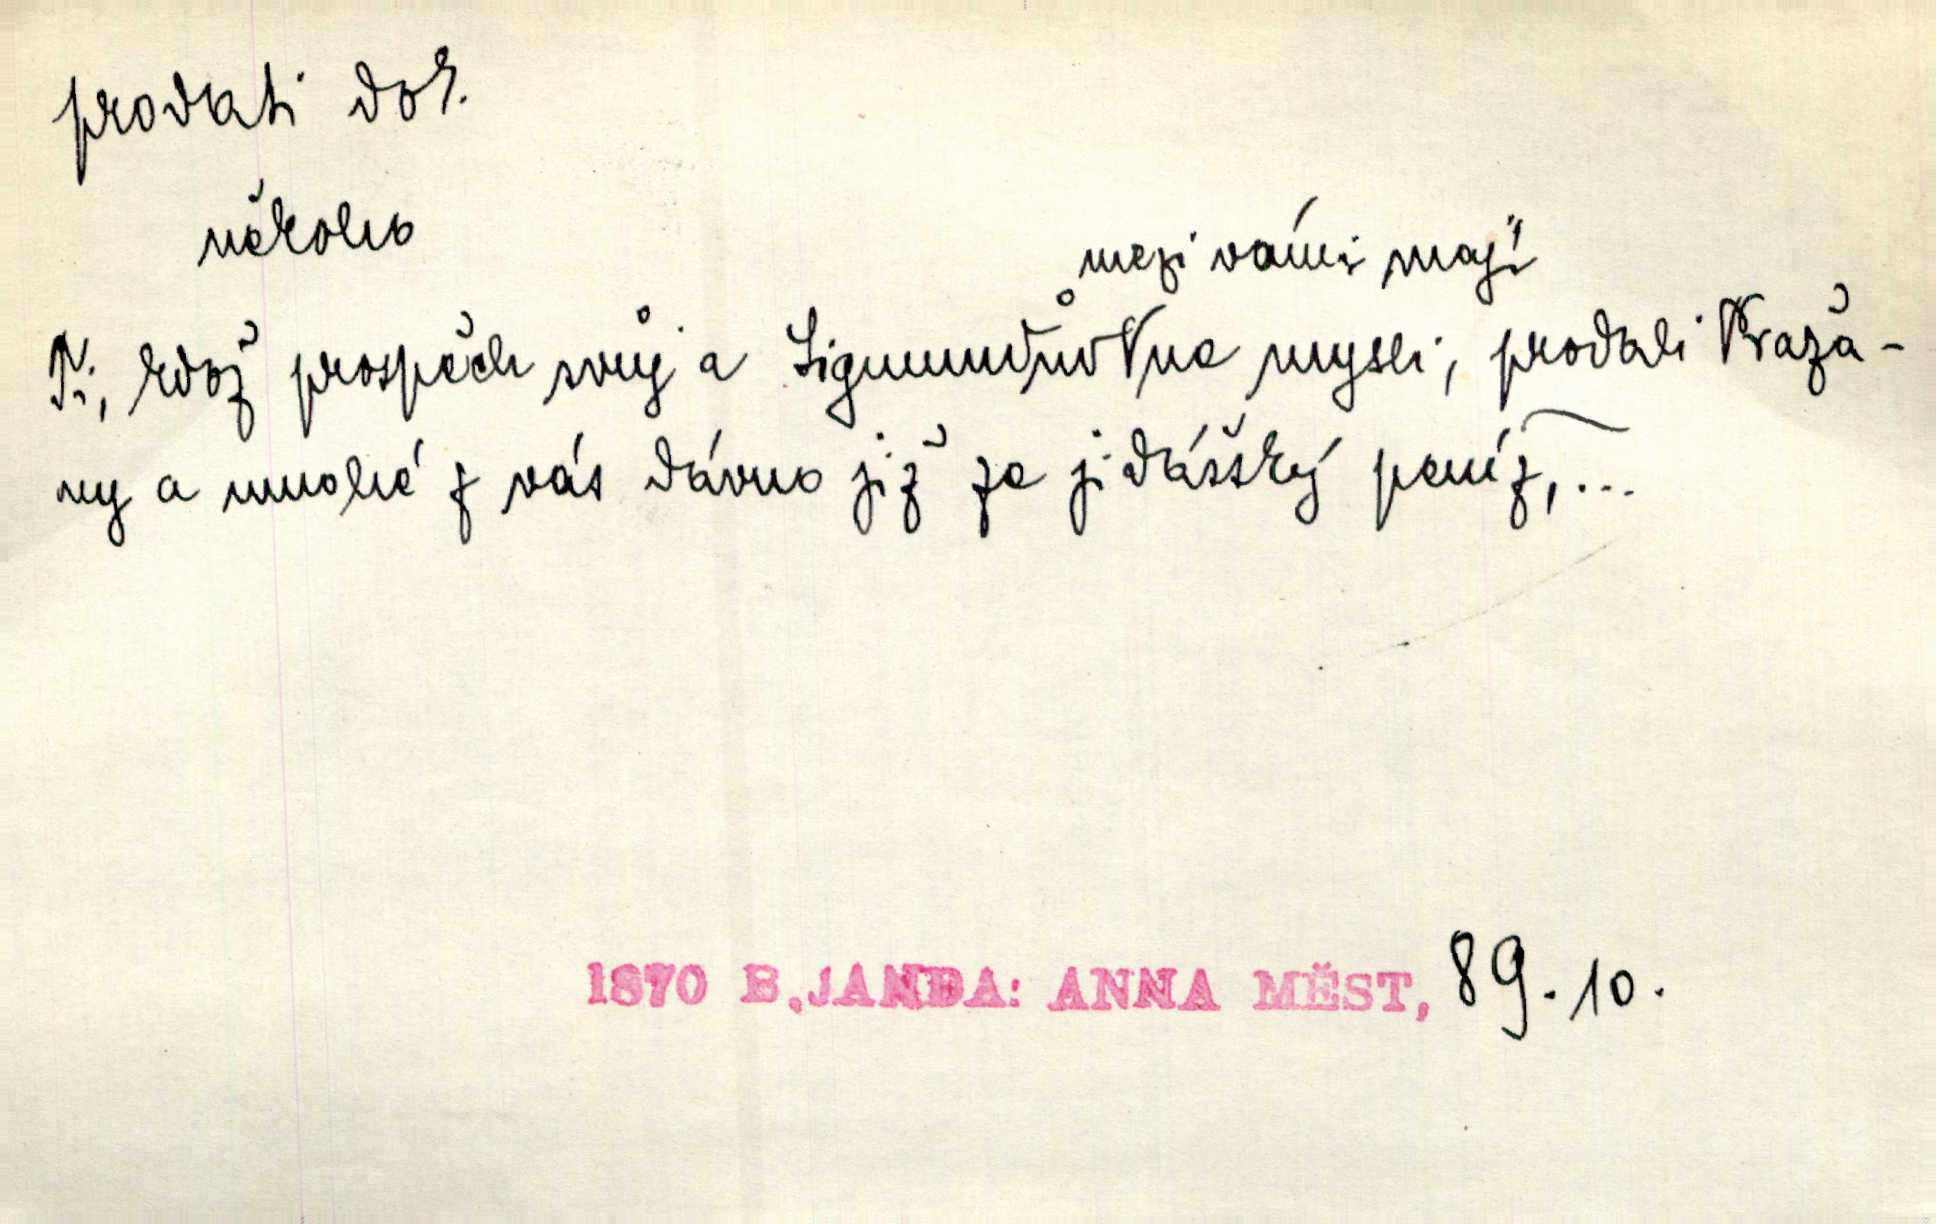 prodati dok.
někoho
mezi vámi mají
Ti, kdož prospěch svůj a Sigmundův na mysli, prodali Praža-
ny a mnohé z vás dávno již za jidášský peníz, ...
1870 B.JANDA: ANNA MĚST, 89. 10.